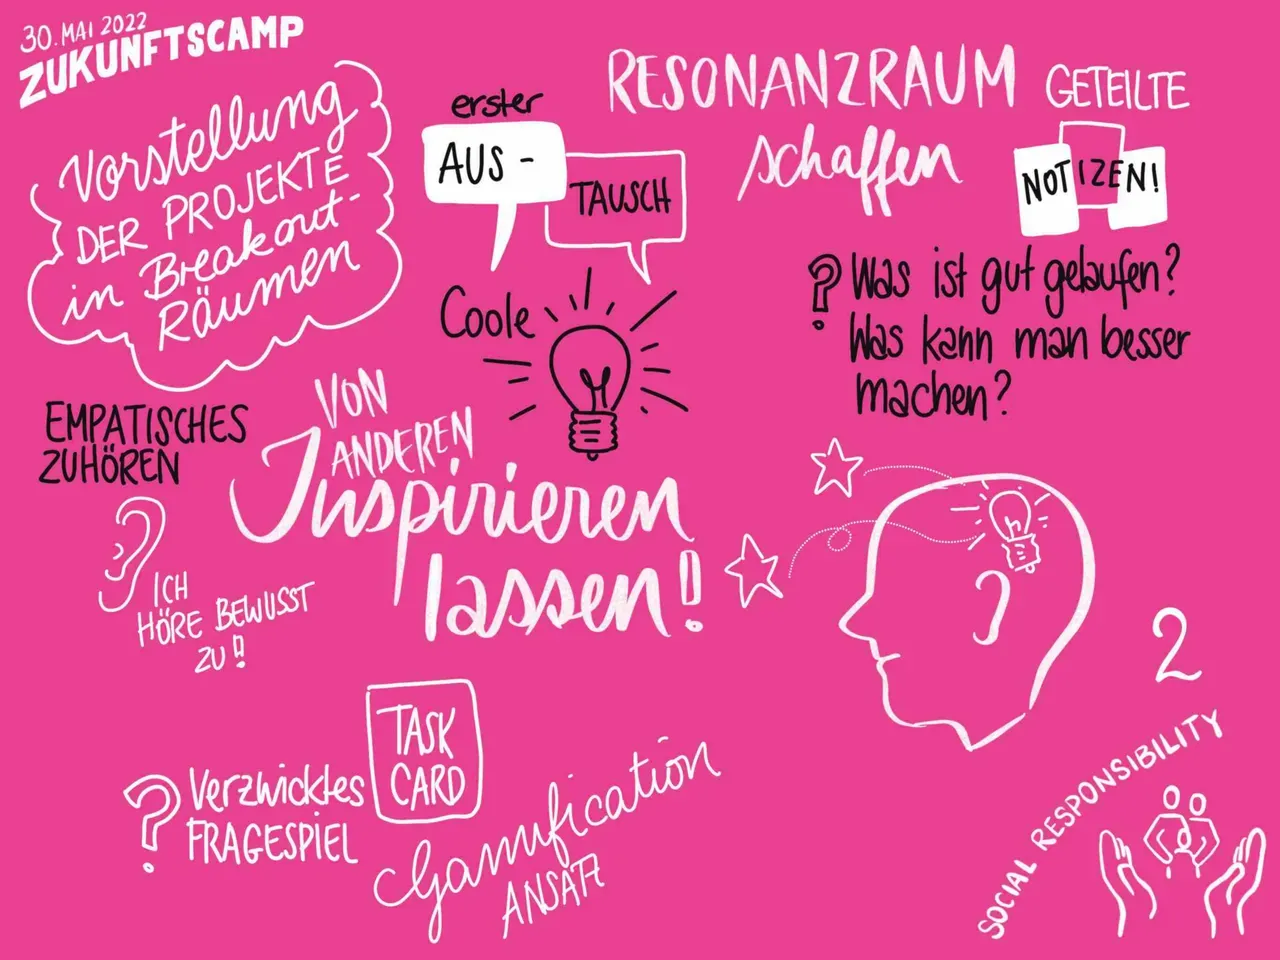 30. MAI 2022
ZUKUNFTSCAMP
Vorstellung
DER PROJEKTE
in Breakout-
RÄUMEN
erster
AUS-
TAUSCH
RESONANZRAUM
schaffen
GETEILTE
NOTIZEN!
? Was ist gut gelaufen?
Was kann man besser
machen?
Coole
EMPATISCHES
ZUHÖREN
ICH
HÖRE BEWUSST
ZU!
VON
ANDEREN
Inspirieren
lassen!
? Verzwicktes
FRAGESPIEL
TASK
CARD
Gamification
ANSATZ
2
SOCIAL RESPONSIBILITY